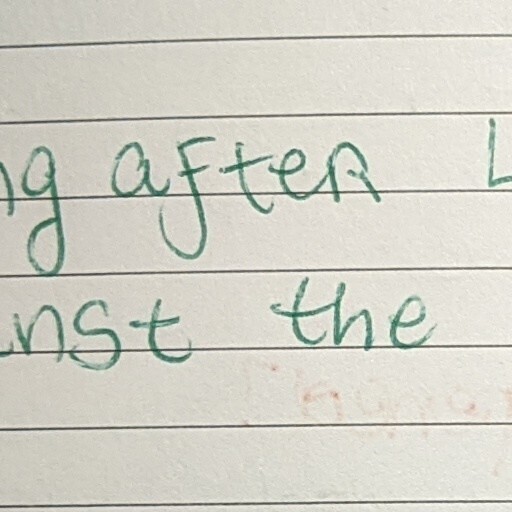 ng after L
inst the